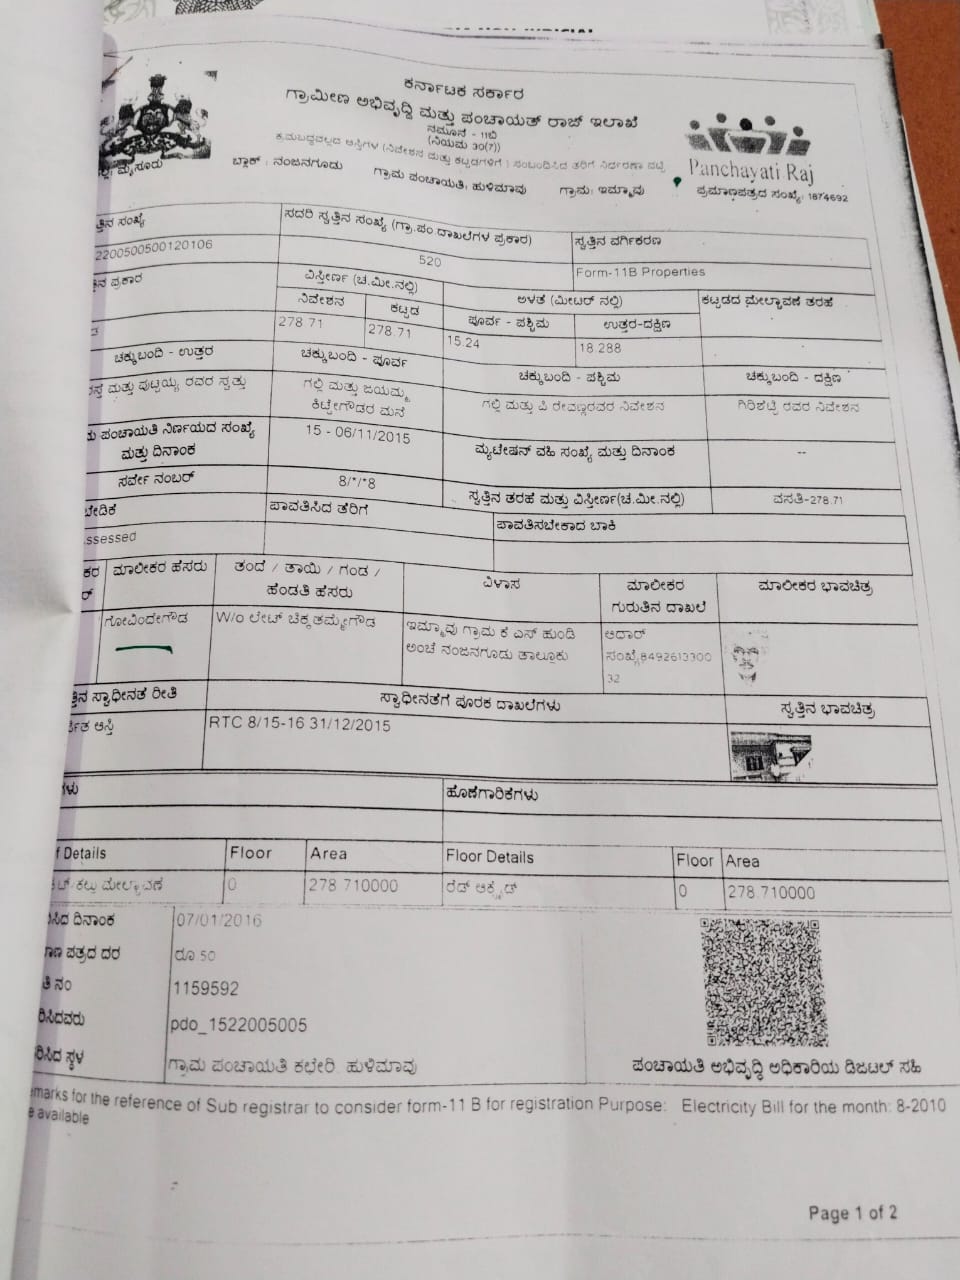 ಕರ್ನಾಟಕ ಸರ್ಕಾರ
ಗ್ರಾಮೀಣ ಅಭಿವೃದ್ಧಿ ಮತ್ತು ಪಂಚಾಯತ್ ರಾಜ್ ಇಲಾಖೆ
ನಮೂನೆ - 11ಬಿ
(ನಿಯಮ 30(7))
ಕ್ರಮಬದ್ಧವಲ್ಲದ ಆಸ್ತಿಗಳ (ನಿವೇಶನ ಮತ್ತು ಕಟ್ಟಡಗಳಿಗೆ) ಸಂಬಂದಿಸಿದ ತೆರಿಗೆ ನಿರ್ಧರಣಾ ಪಟ್ಟಿ
Panchayati Raj
ಮೈಸೂರು ಬ್ಲಾಕ್ : ನಂಜನಗೂಡು ಗ್ರಾಮ ಪಂಚಾಯತಿ: ಹುಳಿಮಾವು ಗ್ರಾಮ: ಇಮ್ಮಾವು ಪ್ರಮಾಣಪತ್ರದ ಸಂಖ್ಯೆ: 1874692
ತ್ತಿನ ಸಂಖ್ಯೆ ಸದರಿ ಸ್ವತ್ತಿನ ಸಂಖ್ಯೆ (ಗ್ರಾ.ಪಂ.ದಾಖಲೆಗಳ ಪ್ರಕಾರ) ಸ್ವತ್ತಿನ ವರ್ಗೀಕರಣ
2200500500120106 520 Form-11B Properties
ಪ್ರಕಾರ ವಿಸ್ತೀರ್ಣ (ಚ.ಮೀ.ನಲ್ಲಿ) ಅಳತೆ (ಮೀಟರ್ ನಲ್ಲಿ) ಕಟ್ಟಡದ ಮೇಲ್ಚಾವಣಿ ತರಹೆ
ನಿವೇಶನ ಕಟ್ಟಡ ಪೂರ್ವ - ಪಶ್ಚಿಮ ಉತ್ತರ-ದಕ್ಷಿಣ
278.71 278.71 15.24 18.288
ಚಕ್ಕುಬಂದಿ - ಉತ್ತರ ಚಕ್ಕುಬಂದಿ - ಪೂರ್ವ ಚಕ್ಕುಬಂದಿ - ಪಶ್ಚಿಮ ಚಕ್ಕುಬಂದಿ - ದಕ್ಷಿಣ
ಮತ್ತು ಪುಟ್ಟಯ್ಯ ರವರ ಸ್ವತ್ತು ಗಲ್ಲಿ ಮತ್ತು ಜಯಮ್ಮ ಕಿಟ್ಟೇಗೌಡರ ಮನೆ ಗಲ್ಲಿ ಮತ್ತು ಪಿ ರೇವಣ್ಣರವರ ನಿವೇಶನ ಗಿರಿಶೆಟ್ಟಿ ರವರ ನಿವೇಶನ
ಪಂಚಾಯತಿ ನಿರ್ಣಯದ ಸಂಖ್ಯೆ ಮತ್ತು ದಿನಾಂಕ 15 - 06/11/2015 ಮ್ಯುಟೇಷನ್ ವಹಿ ಸಂಖ್ಯೆ ಮತ್ತು ದಿನಾಂಕ --
ಸರ್ವೇ ನಂಬರ್ 8/*/*8 ಸ್ವತ್ತಿನ ತರಹೆ ಮತ್ತು ವಿಸ್ತೀರ್ಣ(ಚ.ಮೀ.ನಲ್ಲಿ) ವಸತಿ-278.71
ಬೇಡಿಕೆ ಪಾವತಿಸಿದ ತೆರಿಗೆ ಪಾವತಿಸಬೇಕಾದ ಬಾಕಿ
ssessed
ಕರ ಮಾಲೀಕರ ಹೆಸರು ತಂದೆ / ತಾಯಿ / ಗಂಡ / ಹೆಂಡತಿ ಹೆಸರು ವಿಳಾಸ ಮಾಲೀಕರ ಗುರುತಿನ ದಾಖಲೆ ಮಾಲೀಕರ ಭಾವಚಿತ್ರ
ಗೋವಿಂದೇಗೌಡ W/o ಲೇಟ್ ಚಿಕ್ಕತಮ್ಮೇಗೌಡ ಇಮ್ಮಾವು ಗ್ರಾಮ ಕೆ ಎಸ್ ಹುಂಡಿ ಅಂಚೆ ನಂಜನಗೂಡು ತಾಲ್ಲೂಕು ಆಧಾರ್ ಸಂಖ್ಯೆ849261330032
ತ್ತಿನ ಸ್ವಾಧೀನತೆ ರೀತಿ ಸ್ವಾಧೀನತೆಗೆ ಪೂರಕ ದಾಖಲೆಗಳು ಸ್ವತ್ತಿನ ಭಾವಚಿತ್ರ
ರ್ಜಿತ ಆಸ್ತಿ RTC 8/15-16 31/12/2015
ಗಳು ಹೊಣೆಗಾರಿಕೆಗಳು
f Details Floor Area Floor Details Floor Area
ಮೇಲ್ಚಾವಣಿ 0 278 710000 ರೆಡ್ ಆಕ್ಸೈಡ್ 0 278.710000
ಸಿದ ದಿನಾಂಕ 07/01/2016
ಪತ್ರದ ದರ ರೂ.50
ತಿ ನಂ 1159592
ರಿಸಿದವರು pdo_1522005005
ರಿಸಿದ ಸ್ಥಳ ಗ್ರಾಮ ಪಂಚಾಯತಿ ಕಛೇರಿ, ಹುಳಿಮಾವು ಪಂಚಾಯತಿ ಅಭಿವೃದ್ಧಿ ಅಧಿಕಾರಿಯ ಡಿಜಿಟಲ್ ಸಹಿ
emarks for the reference of Sub registrar to consider form-11 B for registration Purpose: Electricity Bill for the month: 8-2010
e available
Page 1 of 2